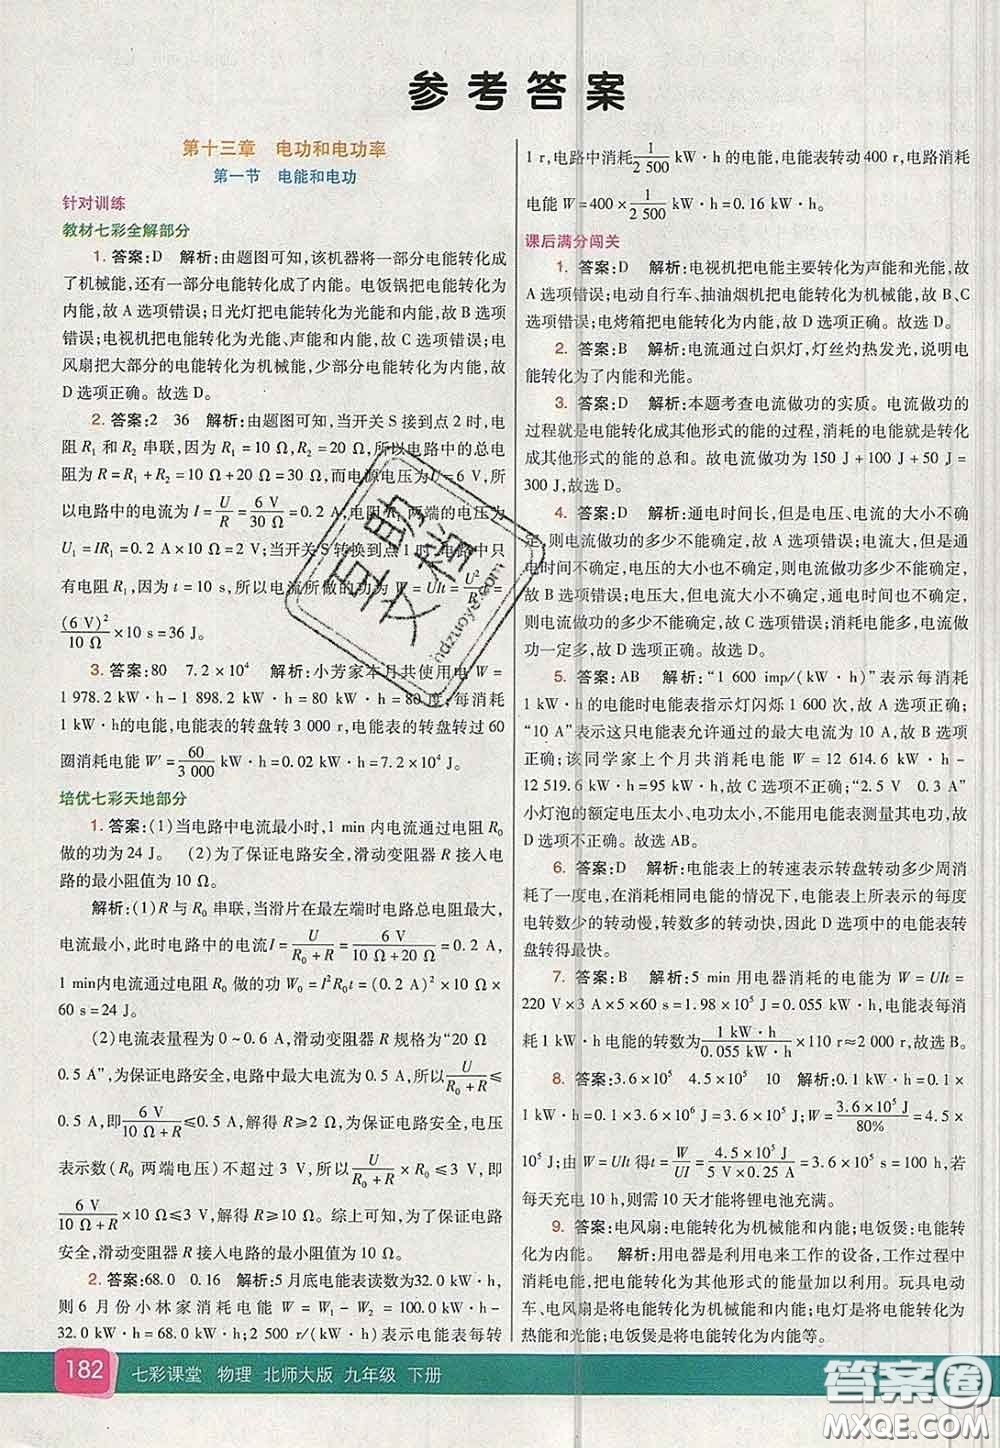 参考答案
第十三章 电功和电功率
第一节 电能和电功
针对训练
教材七彩全解部分
1. 答案:D 解析:由题图可知，该机器将一部分电能转化成
了机械能，还有一部分电能转化成了内能。电饭锅把电能转化
成内能，故 A 选项错误;日光灯把电能转化为光能和内能，故 B 选项
错误;电视机把电能转化为光能、声能和内能，故 C 选项错误;电
风扇把大部分的电能转化为机械能，少部分电能转化为内能，故
D 选项正确。故选 D。
2. 答案:2 36 解析:由题图可知，当开关 S 接到点 2 时，电
阻 R₁ 和 R₂ 串联，因为 R₁=10 Ω，R₂=20 Ω，所以电路中的总电
阻为 R=R₁+R₂=10 Ω+20 Ω=30 Ω，而电源电压为 U=6 V，所
以电路中的电流为 I=U/R=6 V/30 Ω=0.2 A，电阻 R₁ 两端的电压为
U₁=IR₁=0.2 A×10 Ω=2 V;当开关 S 转换到点 1 时，电路中只
有电阻 R₁，因为 t=10 s，所以电流所做的功为 W=UIt=U²/R₁ t=
(6 V)²/10 Ω×10 s=36 J。
3. 答案:80 7.2×10⁴ 解析:小芳家本月共使用电 W=
1 978.2 kW·h-1 898.2 kW·h=80 kW·h=80 度;每消耗
1 kW·h的电能，电能表的转盘转 3 000 r，电能表的转盘转过 60
圈消耗电能 W′=60/3 000 kW·h=0.02 kW·h=7.2×10⁴ J。
培优七彩天地部分
1. 答案:(1)当电路中电流最小时，1 min 内电流通过电阻 R₀
做的功为 24 J。 (2)为了保证电路安全，滑动变阻器 R 接入电
路的最小阻值为 10 Ω。
解析:(1)R 与 R₀ 串联，当滑片在最左端时电路总电阻最大，
电流最小，此时电路中的电流 I=U/(R₀+R)=6 V/(10 Ω+20 Ω)=0.2 A，
1 min内电流通过电阻 R₀ 做的功 W₀=I²R₀t=(0.2 A)²×10 Ω×
60 s=24 J。
(2)电流表量程为 0~0.6 A，滑动变阻器 R 规格为“20 Ω
0.5 A”，为保证电路安全，电路中最大电流为 0.5 A，所以U/(R₀+R)≤
0.5 A，即6 V/(10 Ω+R)≤0.5 A，解得 R≥2 Ω，为保证电路安全，电压
表示数(R₀ 两端电压)不超过 3 V，所以U/(R₀+R)×10 Ω≤3 V，即
6 V/(10 Ω+R)×10 Ω≤3 V，解得 R≥10 Ω。综上可知，为了保证电路
安全，滑动变阻器 R 接入电路的最小阻值为 10 Ω。
2. 答案:68.0 0.16 解析:5 月底电能表读数为32.0 kW·h，
则 6 月份小林家消耗电能 W=W₁-W₂=100.0 kW·h-
32.0 kW·h=68.0 kW·h;2 500 r/(kW·h)表示电能表每转
1 r，电路中消耗1/2 500 kW·h 的电能，电能表转动 400 r，电路消耗
电能 W=400×1/2 500 kW·h=0.16 kW·h。
课后满分闯关
1. 答案:D 解析:电视机把电能主要转化为声能和光能，故
A 选项错误;电动自行车、抽油烟机把电能转化为机械能，故 B、C
选项错误;电烤箱把电能转化为内能，故 D 选项正确。故选 D。
2. 答案:B 解析:电流通过白炽灯，灯丝灼热发光，说明电
能转化为了内能和光能。
3. 答案:D 解析:本题考查电流做功的实质。电流做功的
过程就是电能转化成其他形式的能的过程，消耗的电能等于转化
成其他形式的能的总和。故电流做功为 150 J+100 J+50 J=
300 J，故选 D。
4. 答案:D 解析:通电时间长，但是电压、电流的大小不确
定，则电流做功的多少不能确定，故 A 选项错误;电流大，但是通
电时间不确定，电压的大小也不确定，则电流做功多少不能确定，
故 B 选项错误;电压大，但电流大小、通电时间的长短不确定，
则电流做功的多少不能确定，故 C 选项错误;消耗电能多，电流做
功一定多，故 D 选项正确。故选 D。
5. 答案:AB 解析:“1 600 imp/(kW·h)”表示每消耗
1 kW·h 的电能时电能表指示灯闪烁 1 600 次，故 A 选项正确;
“10 A”表示这只电能表允许通过的最大电流为 10 A，故 B 选项
正确;该同学家上个月共消耗电能 W=12 614.6 kW·h-
12 519.6 kW·h=95 kW·h，故 C 选项错误;“2.5 V 0.3 A”
小灯泡的额定电压太小、电功太小，不能用电能表测量其电功，故
D 选项不正确。故选 AB。
6. 答案:D 解析:电能表上的转速表示转盘转动多少周消
耗了一度电，在消耗相同电能的情况下，电能表上所表示的每度
电转数少的转动慢，转数多的转动快，因此 D 选项中的电能表转
盘转得最快。
7. 答案:B 解析:5 min 用电器消耗的电能为 W=UIt=
220 V×3 A×5×60 s=1.98×10⁵ J=0.055 kW·h，电能表每消
耗1 kW·h，电能表的转数为1 kW·h/0.055 kW·h×110 r≈2 000 r，故选 B。
8. 答案:3.6×10⁵ 4.5×10⁵ 10 解析:0.1 kW·h=0.1×
1 kW·h=0.1×3.6×10⁶ J=3.6×10⁵ J;W=3.6×10⁵ J/80%=4.5×
10⁵ J;由 W=UIt 得 t=W/UI=4.5×10⁵ J/(5 V×0.25 A)=3.6×10⁵ s=100 h，若
每天充电 10 h，则需 10 天才能将锂电池充满。
9. 答案:电风扇:电能转化为机械能和内能;电饭煲:电能转
化为内能。 解析:用电器是利用电来工作的设备，工作过程中
消耗电能，把电能转化为其他形式的能量加以利用。玩具电动
车、电风扇是将电能转化为机械能和内能;电灯是将电能转化为
光能和内能;电饭煲是将电能转化为内能等。
182 七彩课堂 物理 北师大版 九年级 下册
早助
文档
ndzuoye.com
答案圈
MXQE.COM